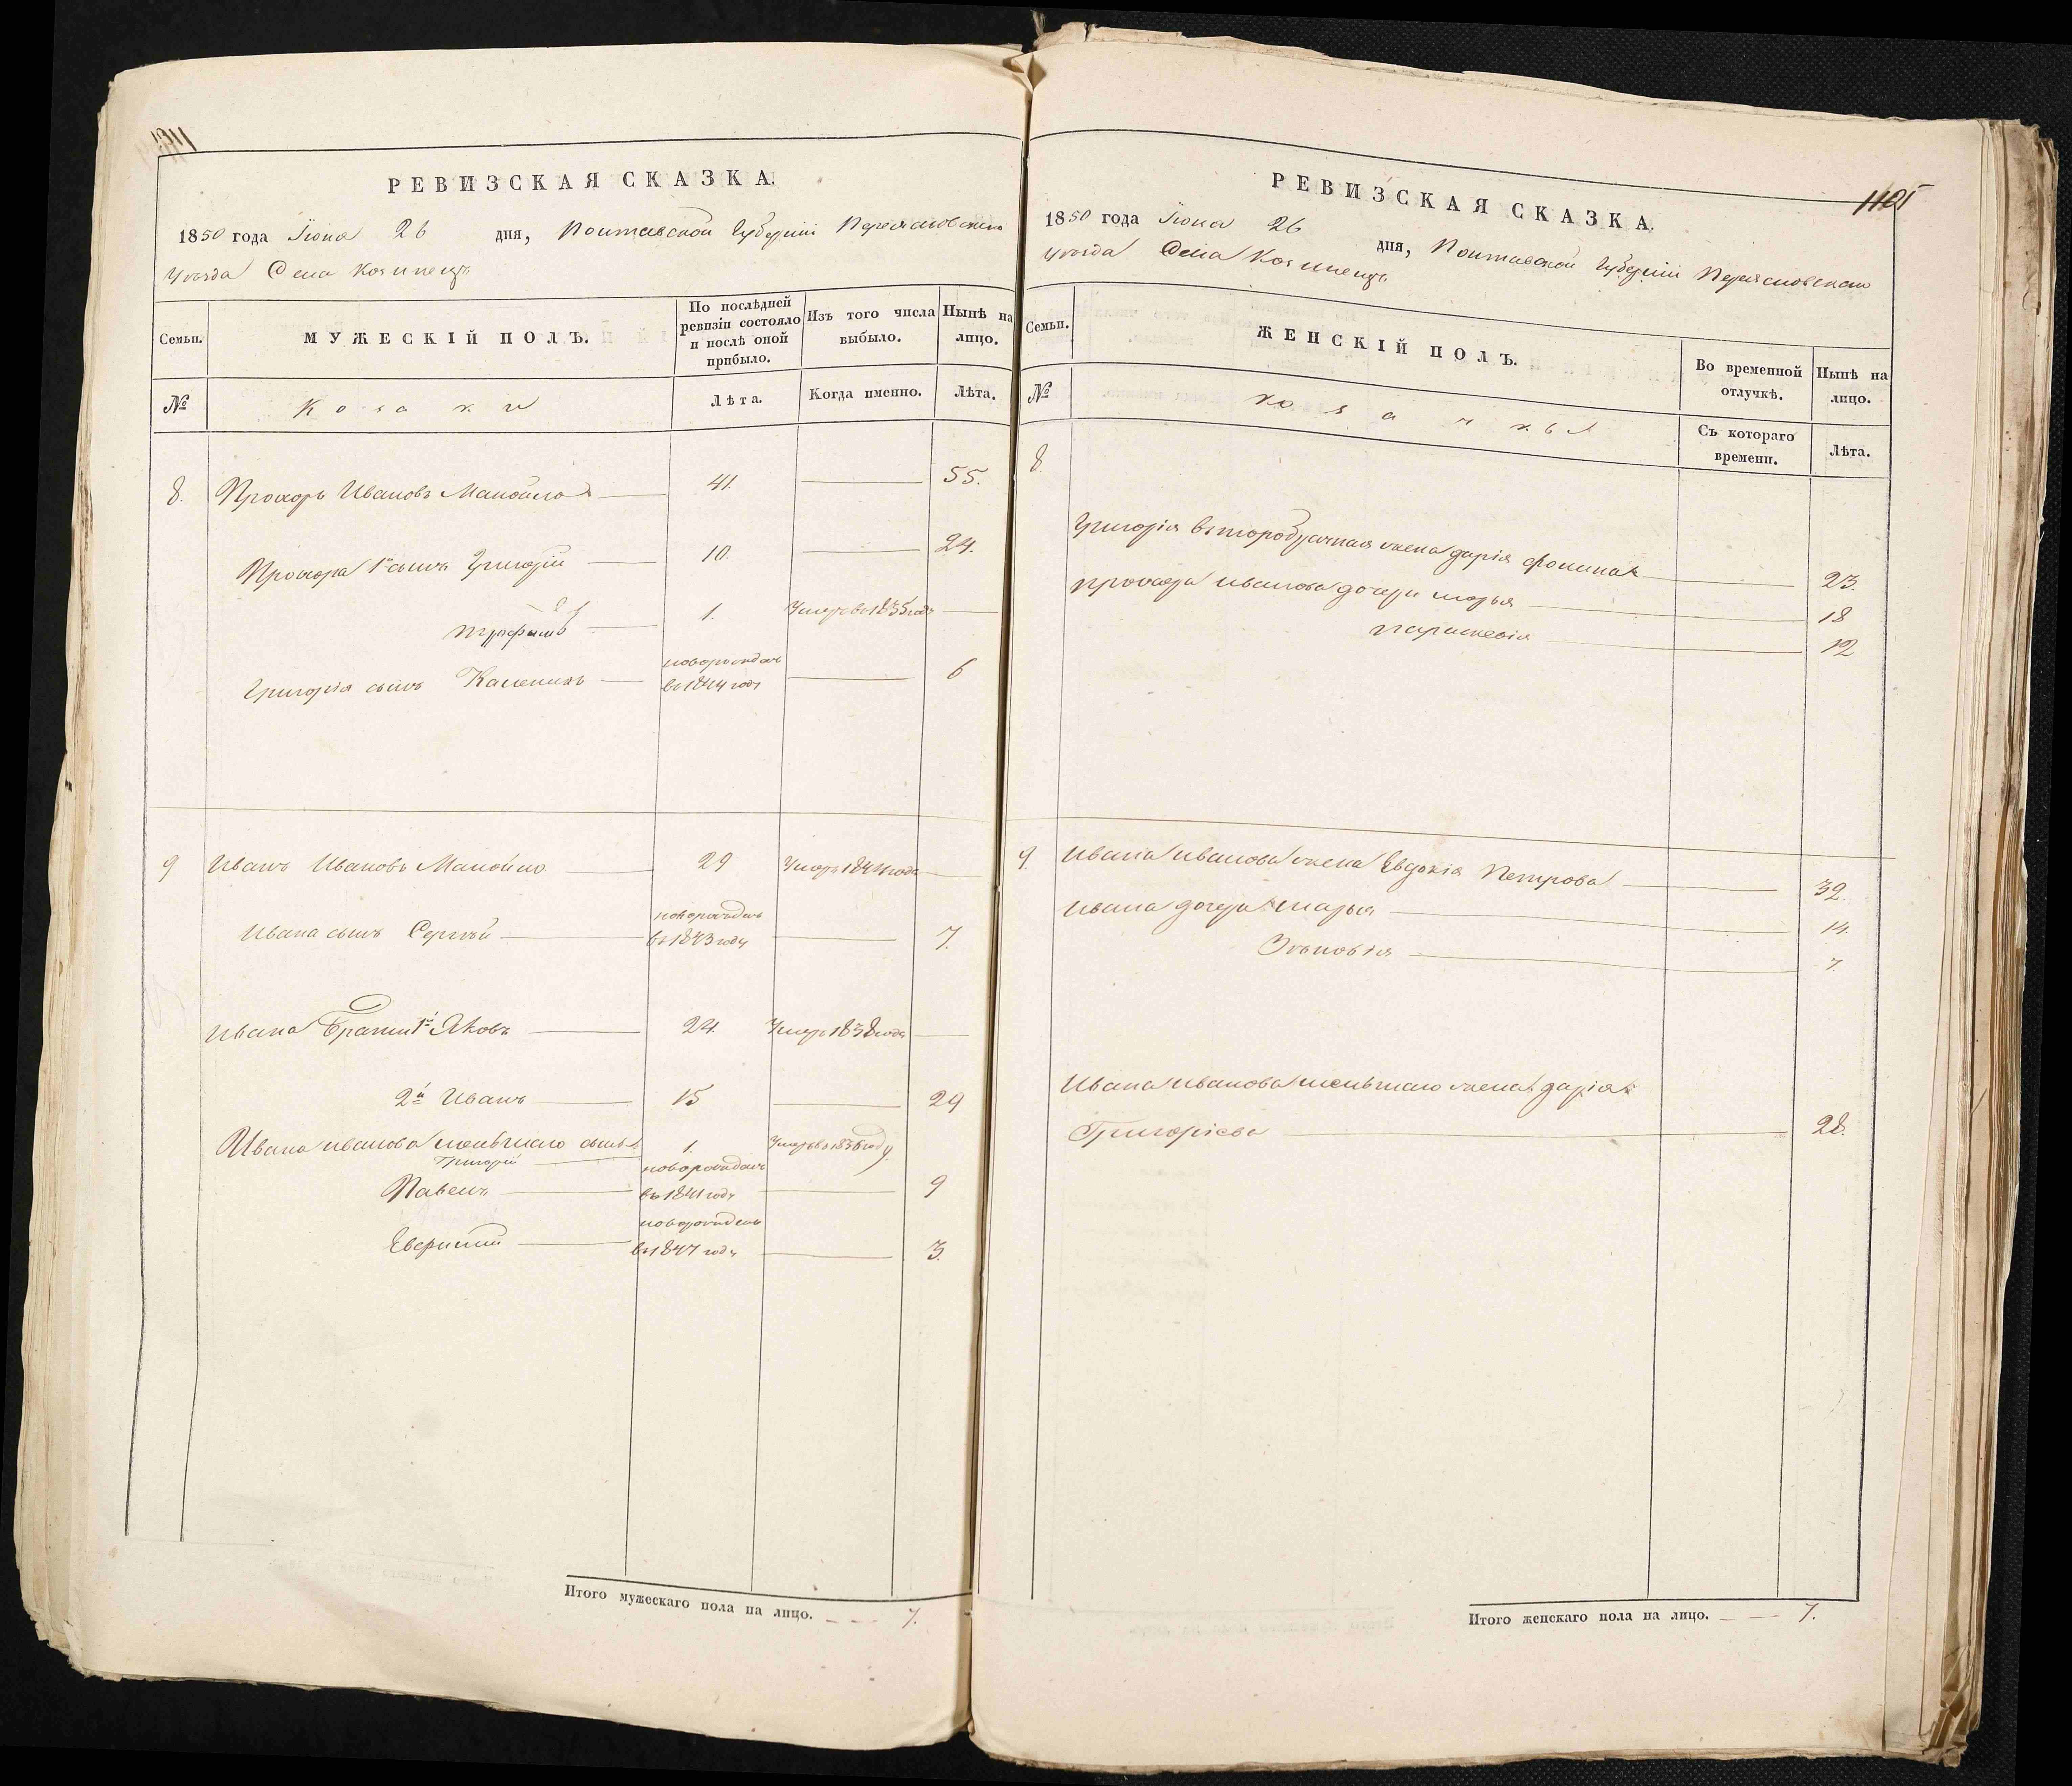 РЕВИЗСКАЯ СКАЗКА.
1850 года Іюна 26 дня, Полтавской Губерніи Переяславскаго
уѣзда Села Козинецъ
Семьи.
МУЖЕСКІЙ ПОЛЪ.
По послѣдней ревизіи состояло и послѣ оной прибыло.
Изъ того числа выбыло.
Нынѣ на лицо.
№
Козаки
Лѣта.
Когда именно.
Лѣта.
8. Прохоръ Ивановъ Манойло 41. 55.
Прохора 1й сынъ Григорій 10. 24.
2й Трофимъ 1. Умеръ въ 1835 годѣ
Григорія сынъ Каленикъ новорожденъ въ 1844 году 6
9 Иванъ Ивановъ Манойло 29 Умеръ 1844 года
Ивана сынъ Сергѣй новорожденъ въ 1843 году 7.
Ивана Братья 1й Яковъ 24. Умеръ 1838 года
2й Иванъ 15 29
Ивана иванова меньшаго сынъ 1. Умеръ въ 1836 году
Григорій
Павелъ новорожденъ въ 1841 году 9
новорожденъ въ 1847 году 3.
Итого мужескаго пола на лицо. 7.
1105
РЕВИЗСКАЯ СКАЗКА.
1850 года Іюна 26 дня, Полтавской Губерніи Переяславскаго
уѣзда Села Козинецъ
Семьи.
ЖЕНСКІЙ ПОЛЪ.
Во временной отлучкѣ.
Нынѣ на лицо.
№
Козачкы
Съ котораго времени.
Лѣта.
8.
Григорія второбрачная жена дарія фомина 23.
Прохора иванова дочери марья 18
параскевія 12
9. Ивана иванова жена Евдокія Петрова 32.
Ивана дочеры марья 14.
Зѣновія 7.
Ивана иванова меньшаго жена дарія
Григоріева 28.
Итого женскаго пола на лицо. 7.